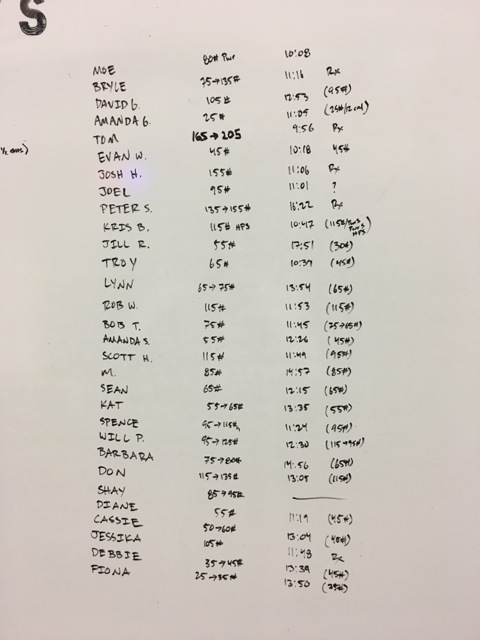 S
MOE 80# Pwr 10:08
BRYCE 75→135# 11:16 Rx
DAVID G. 105# 12:53 (95#)
AMANDA G. 25# 11:05 (25#/12cal)
TOM 165→205 9:56 Rx
EVAN W. 45# 10:18 45#
JOSH H. 155# 11:06 Rx
JOEL 95# 11:01 ?
PETER S. 135→155# 16:22 Rx
KRIS B. 115# HPS 10:47 (115#
JILL R. 55# 17:51 (30#)
TROY 65# 10:39 (45#)
LYNN 65→75# 13:54 (65#)
ROB W. 115# 11:53 (115#)
BOB T. 75# 11:45 (75→65#)
AMANDA S. 55# 12:26 (45#)
SCOTT H. 115# 11:49 (95#)
M. 85# 14:57 (85#)
SEAN 65# 12:15 (65#)
KAT 55→65# 13:35 (55#)
SPENCE 95→115# 11:24 (95#)
WILL P. 95→125# 12:30 (115→95#)
BARBARA 75→80# 14:56 (65#)
DON 115→135# 13:05 (115#)
SHAY 85→95#
DIANE 55# 11:19 (45#)
CASSIE 50→60# 13:04 (45#)
JESSIKA 105# 11:48 Rx
DEBBIE 35→45# 13:39 (45#)
FIONA 25→35# 13:50 (25#)